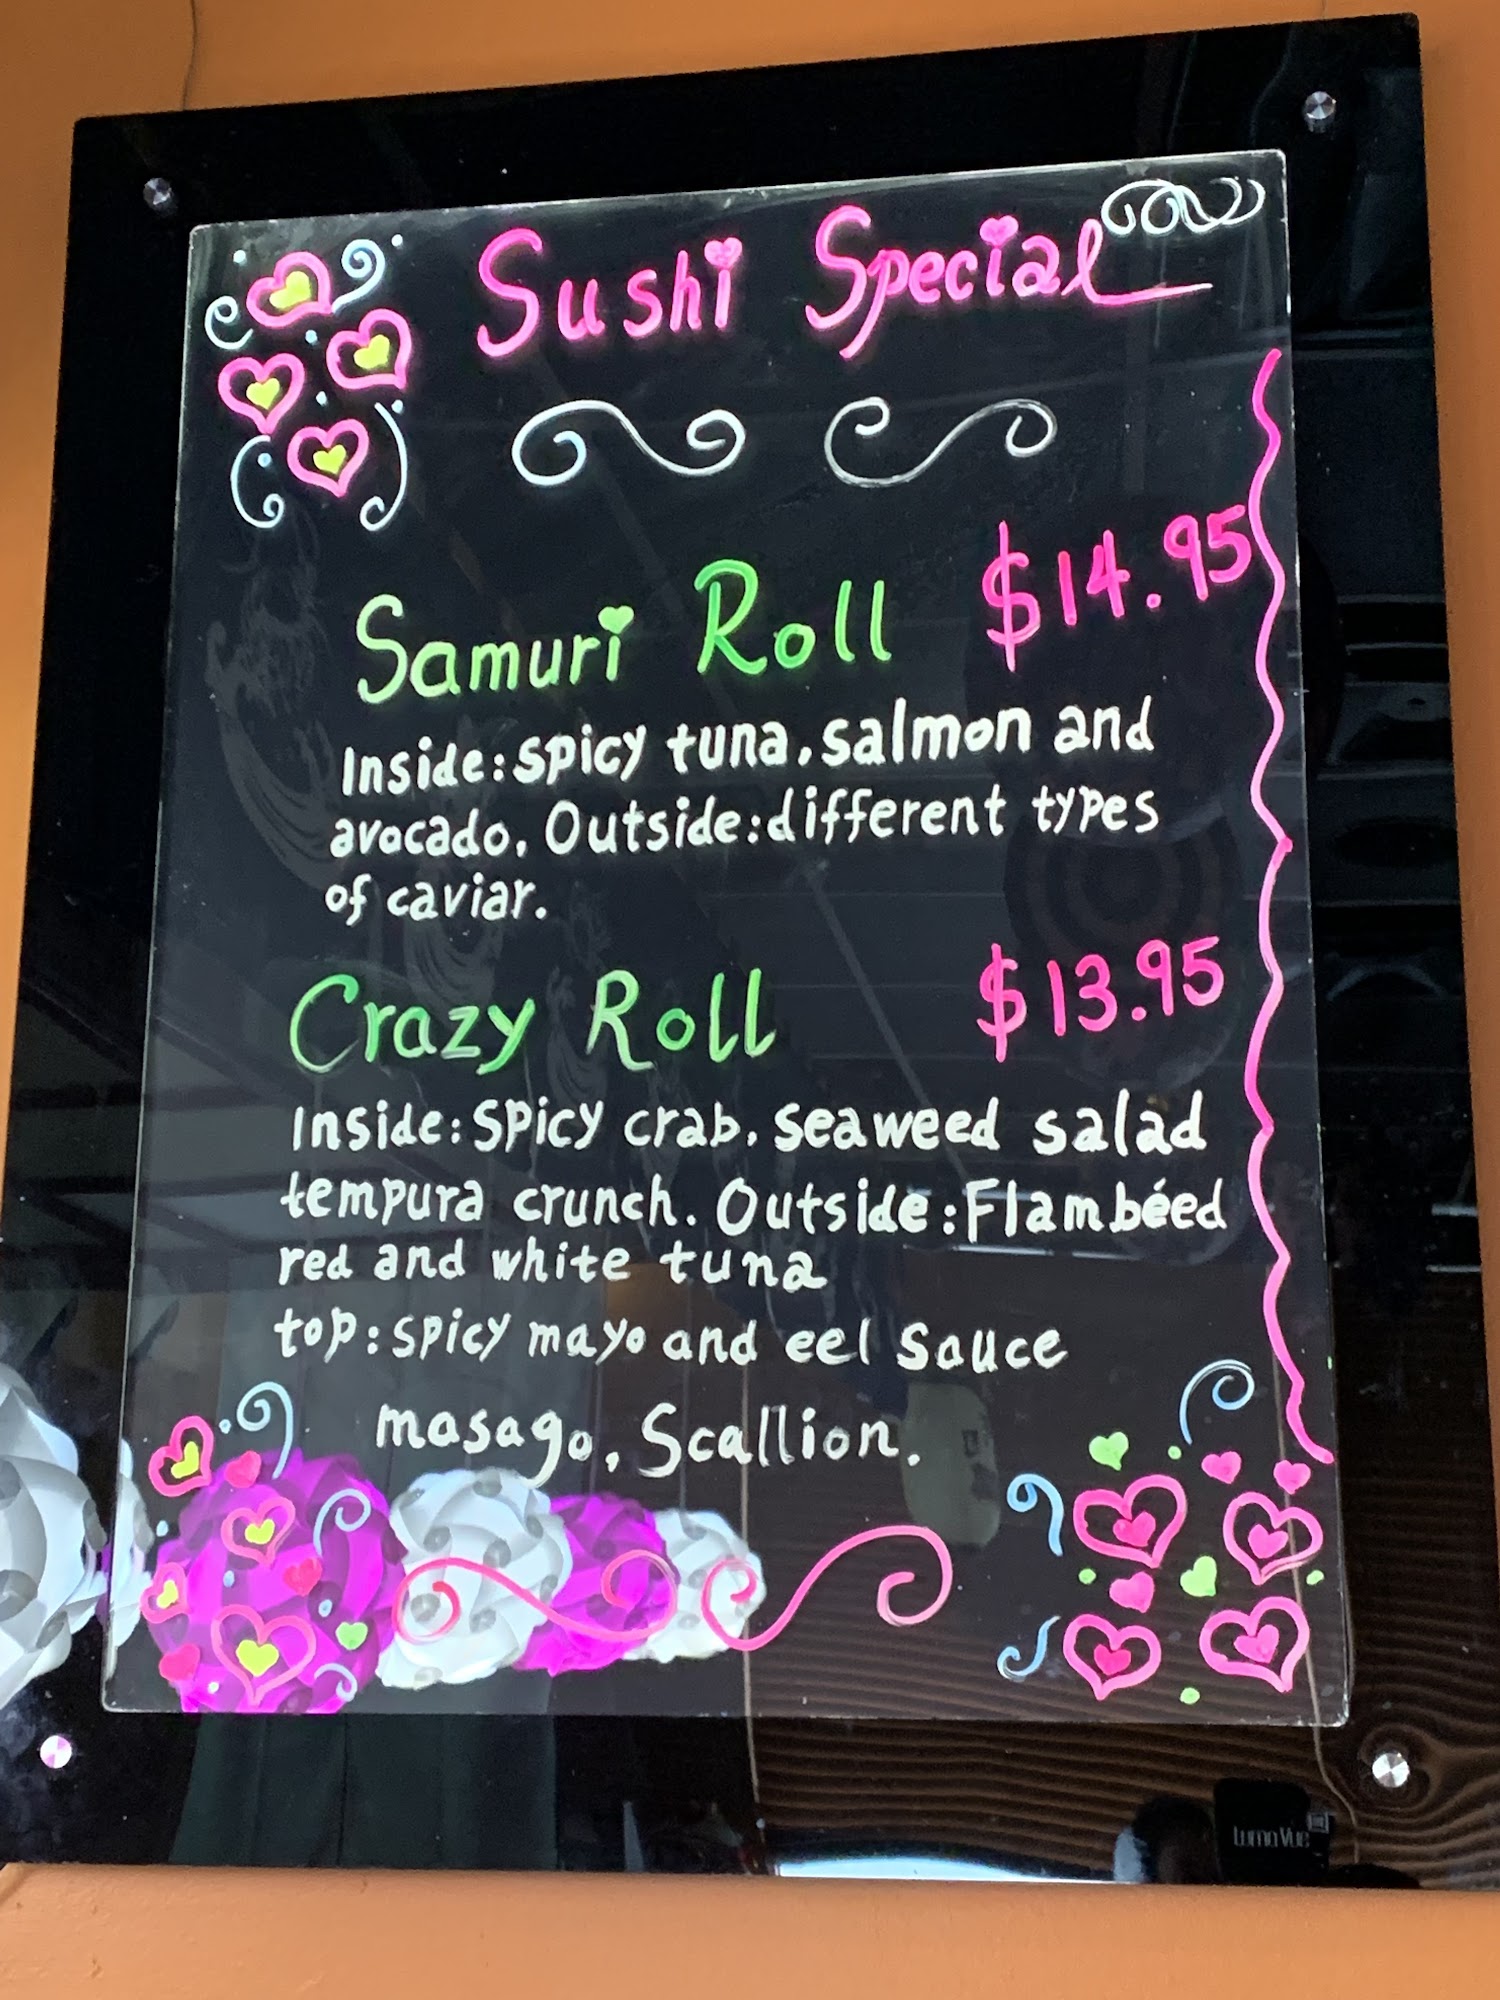 Sushi Special
Samuri Roll $14.95
Inside:spicy tuna, salmon and
avocado. Outside:different types
of caviar.
Crazy Roll $13.95
Inside: spicy crab, seaweed salad
tempura crunch. Outside:Flambéed
red and white tuna
top: spicy mayo and eel sauce
masago, Scallion.
LumaVue